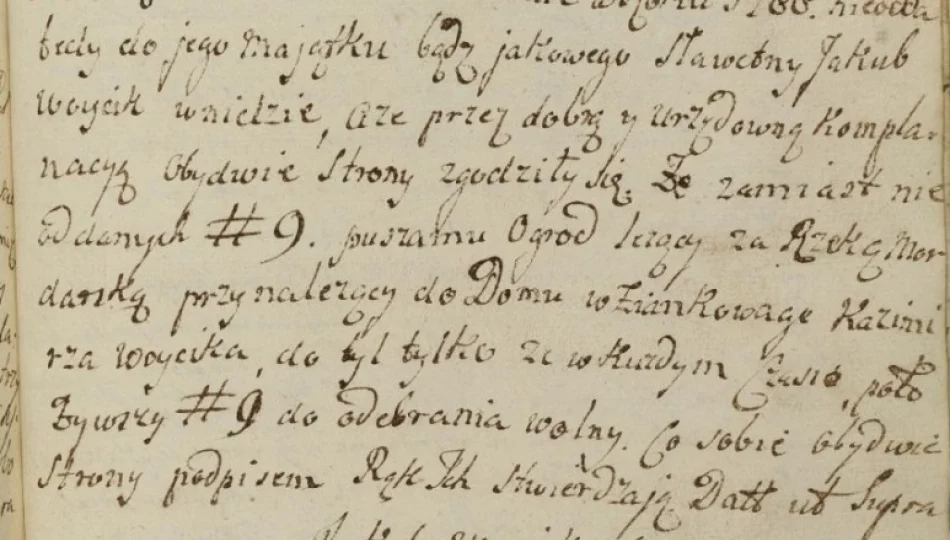 1766. nieodda
tedy do jego Majątku bądz jakowego Sławetny Jakub
Woycik wnidzie, a ze przez dobrą y urzydowną Kompla-
nacyą Obydwie Strony zgodziły się. Że zamiast nie
oddanych # 9. puszcza mu Ogrod lezący za Rzeką Mor
danką przynalezący do Domu wziankowage Kazimi
rza Woycika, do tyl tylko ze w kazdym Czasie, poło
żywszy # 9 do odebrania wolny. Co sobie Obydwie
Strony podpisem Rąk Ich stwierdzają Datt ut Supra